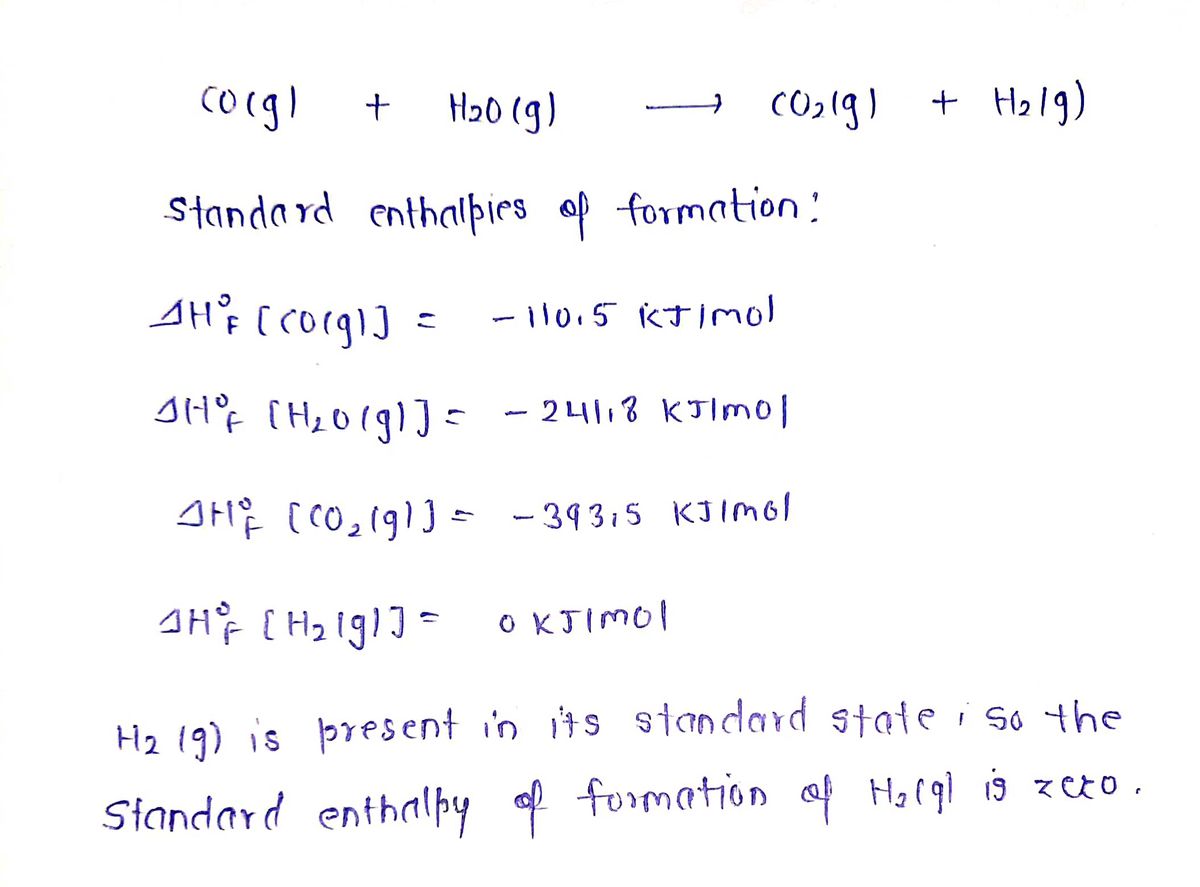 CO(g) + H2O (g) ⟶ CO₂(g) + H₂(g)
Standard enthalpies of formation:
ΔH°F [CO(g)] = -110.5 kJ/mol
ΔH°F [H₂O(g)] = -241.8 KJ/mol
ΔH°F [CO₂(g)] = -393.5 KJ/mol
ΔH°F [H₂(g)] = 0 KJ/mol
H₂ (g) is present in its standard state, so the
Standard enthalpy of formation of H₂(g) is zero.